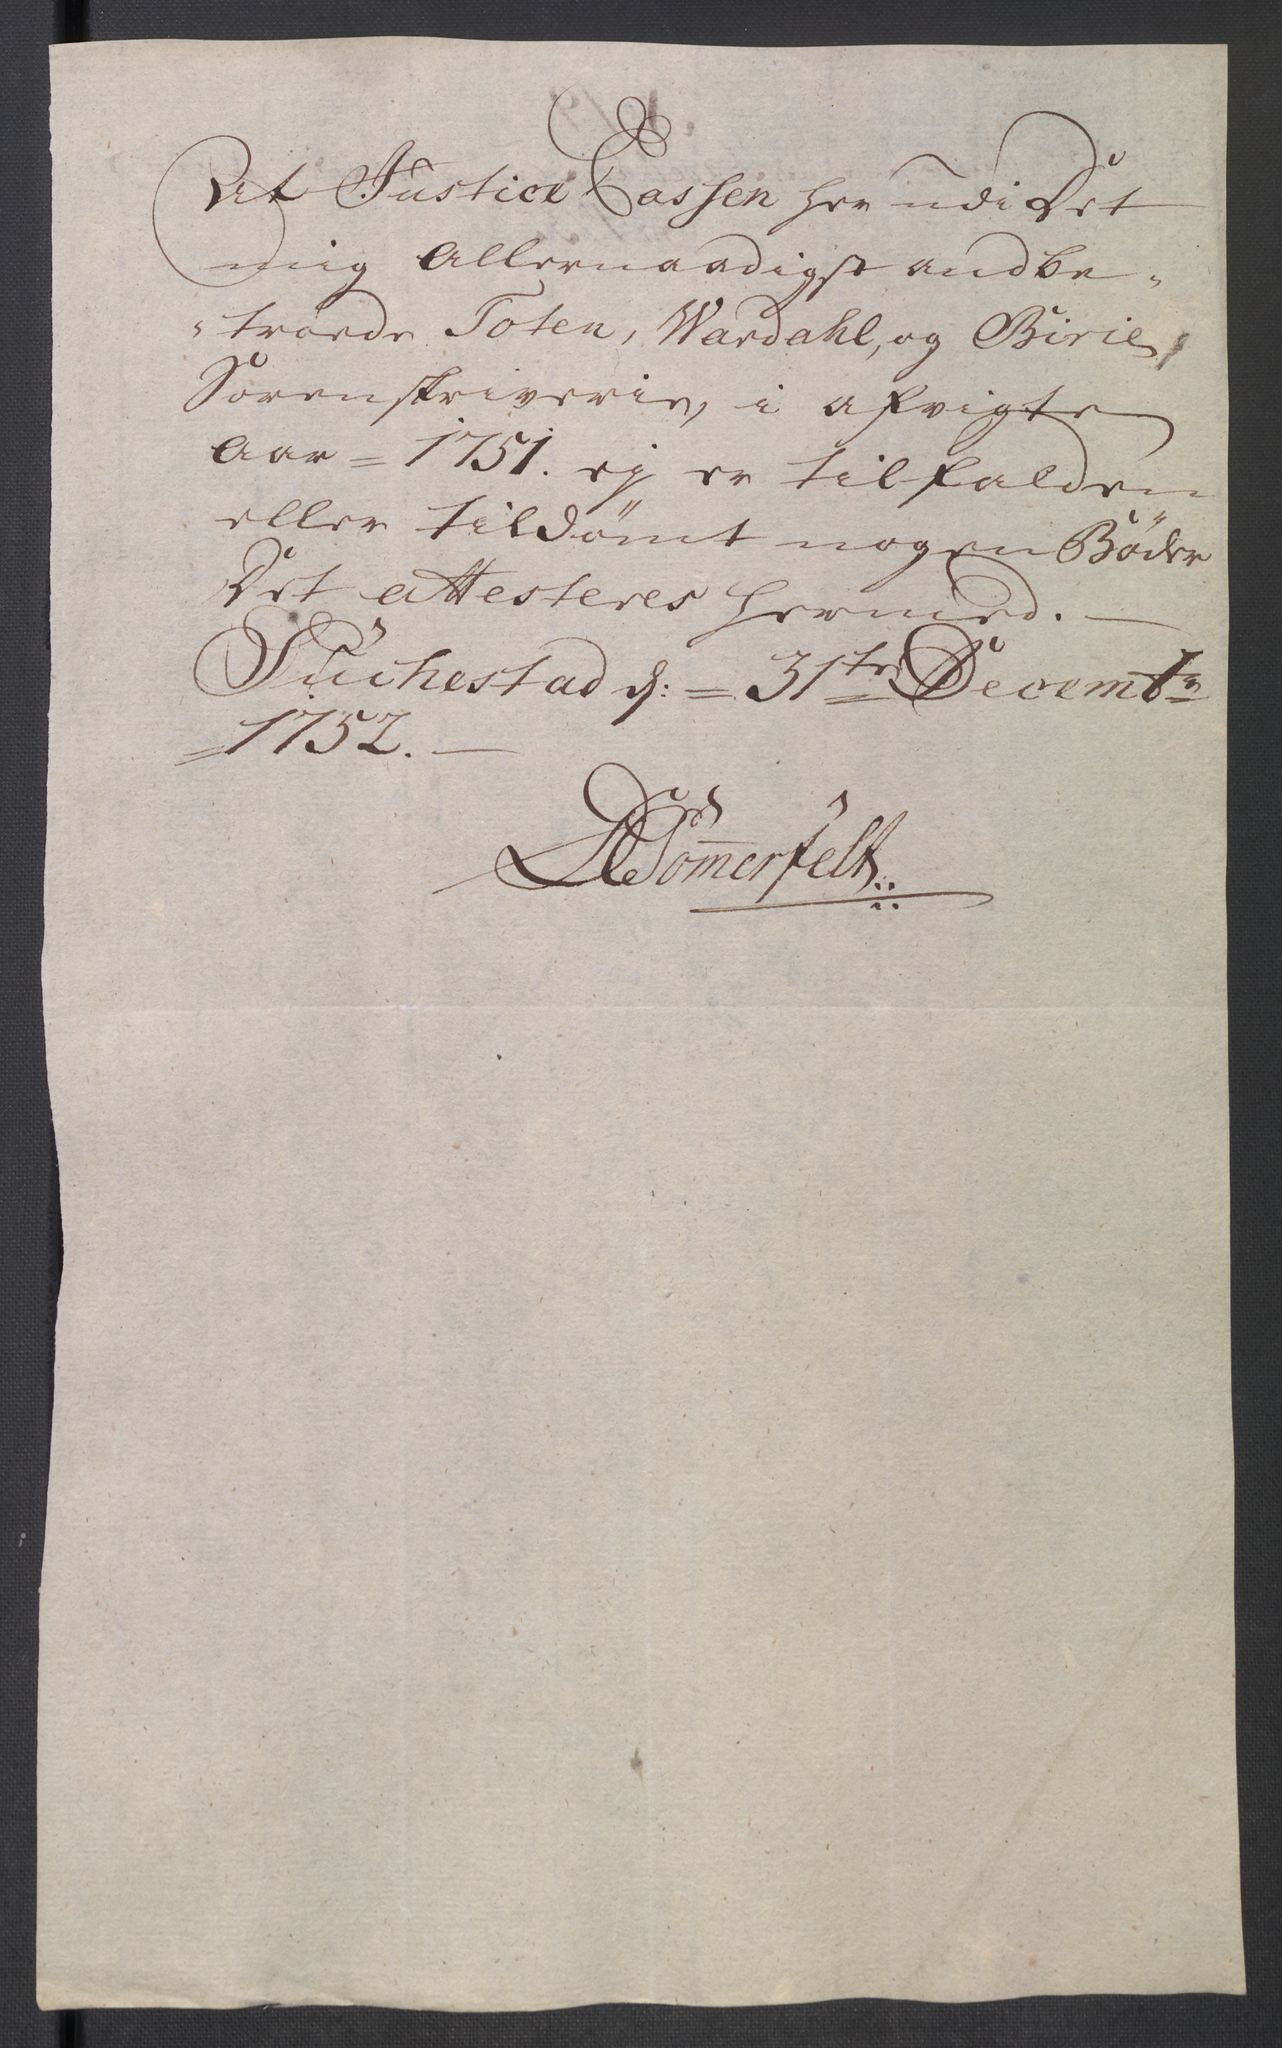 At Justice Cassen her udi Det
mig Allernaadigst andbe-
-troede Toten, Wardahl, og Birie
Sorenskriverie, i afvigte
Aar = 1751. ej er tilfalden
eller tildömt nogen Böder
Det attesteres hermed. —
Suchestad d: = 31te Decembr
= 1752. —
Sömmerfelt